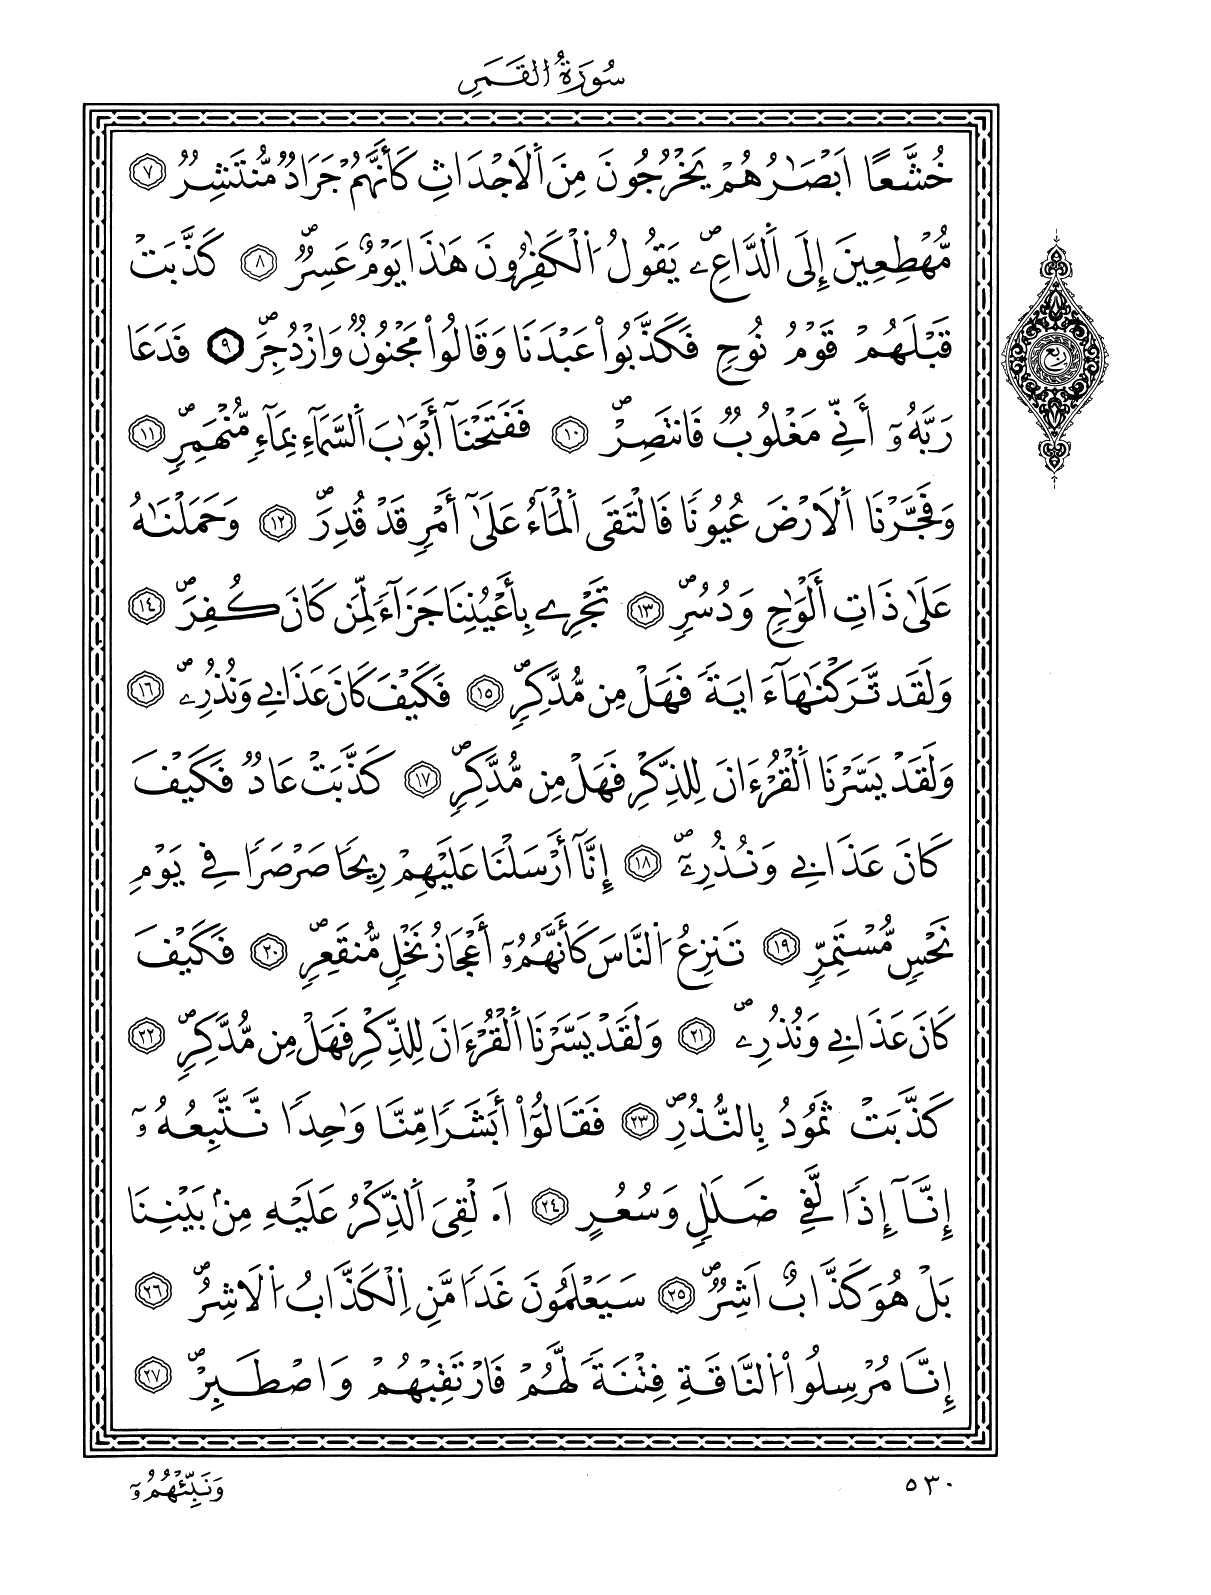 سُورَةُ اُلْقَمَرِ
خُشَّعًا اَبْصَٰرُهُمْ يَخْرُجُونَ مِنَ اَلَاجْدَاثِ كَأَنَّهُمْ جَرَادٌ مُّنتَشِرٌ ٧
مُّهْطِعِينَ إِلَى اَلدَّاعِۦ يَقُولُ اُلْكَٰفِرُونَ هَٰذَا يَوْمٌ عَسِرٌ ٨ كَذَّبَتْ
قَبْلَهُمْ قَوْمُ نُوحٍ فَكَذَّبُواْ عَبْدَنَا وَقَالُواْ مَجْنُونٌ وَازْدُجِرَ ٩ فَدَعَا
رَبَّهُۥٓ أَنِّے مَغْلُوبٌ فَانتَصِرْ ١٠ فَفَتَحْنَآ أَبْوَٰبَ اَلسَّمَآءِ بِمَآءٍ مُّنْهَمِرٍ ١١
وَفَجَّرْنَا اَلَارْضَ عُيُونًا فَالْتَقَى اَلْمَآءُ عَلَىٰٓ أَمْرٍ قَدْ قُدِرَ ١٢ وَحَمَلْنَٰهُ
عَلَىٰ ذَاتِ أَلْوَٰحٍ وَدُسُرٍ ١٣ تَجْرِے بِأَعْيُنِنَا جَزَآءً لِّمَن كَانَ كُفِرَ ١٤
وَلَقَد تَّرَكْنَٰهَآ ءَايَةً فَهَلْ مِن مُّدَّكِرٍ ١٥ فَكَيْفَ كَانَ عَذَابِے وَنُذُرِۦ ١٦
وَلَقَدْ يَسَّرْنَا اَلْقُرْءَانَ لِلذِّكْرِ فَهَلْ مِن مُّدَّكِرٍ ١٧ كَذَّبَتْ عَادٌ فَكَيْفَ
كَانَ عَذَابِے وَنُذُرِۦٓ ١٨ إِنَّآ أَرْسَلْنَا عَلَيْهِمْ رِيحًا صَرْصَرًا فِے يَوْمِ
نَحْسٍ مُّسْتَمِرٍّ ١٩ تَنزِعُ اُلنَّاسَ كَأَنَّهُمُۥٓ أَعْجَازُ نَخْلٍ مُّنقَعِرٍ ٢٠ فَكَيْفَ
كَانَ عَذَابِے وَنُذُرِۦ ٢١ وَلَقَدْ يَسَّرْنَا اَلْقُرْءَانَ لِلذِّكْرِ فَهَلْ مِن مُّدَّكِرٍ ٢٢
كَذَّبَتْ ثَمُودُ بِالنُّذُرِ ٢٣ فَقَالُوٓاْ أَبَشَرًا مِّنَّا وَٰحِدًا نَّتَّبِعُهُۥٓ
إِنَّآ إِذًا لَّفِے ضَلَٰلٍ وَسُعُرٍ ٢٤ اَ۟لْقِيَ اَلذِّكْرُ عَلَيْهِ مِنۢ بَيْنِنَا
بَلْ هُوَ كَذَّابٌ اَشِرٌ ٢٥ سَيَعْلَمُونَ غَدًا مَّنِ اِلْكَذَّابُ اُلَاشِرُ ٢٦
إِنَّا مُرْسِلُواْ اُلنَّاقَةِ فِتْنَةً لَّهُمْ فَارْتَقِبْهُمْ وَاصْطَبِرْ ٢٧
ربع
٥٣٠
وَنَبِّئْهُمُۥٓ